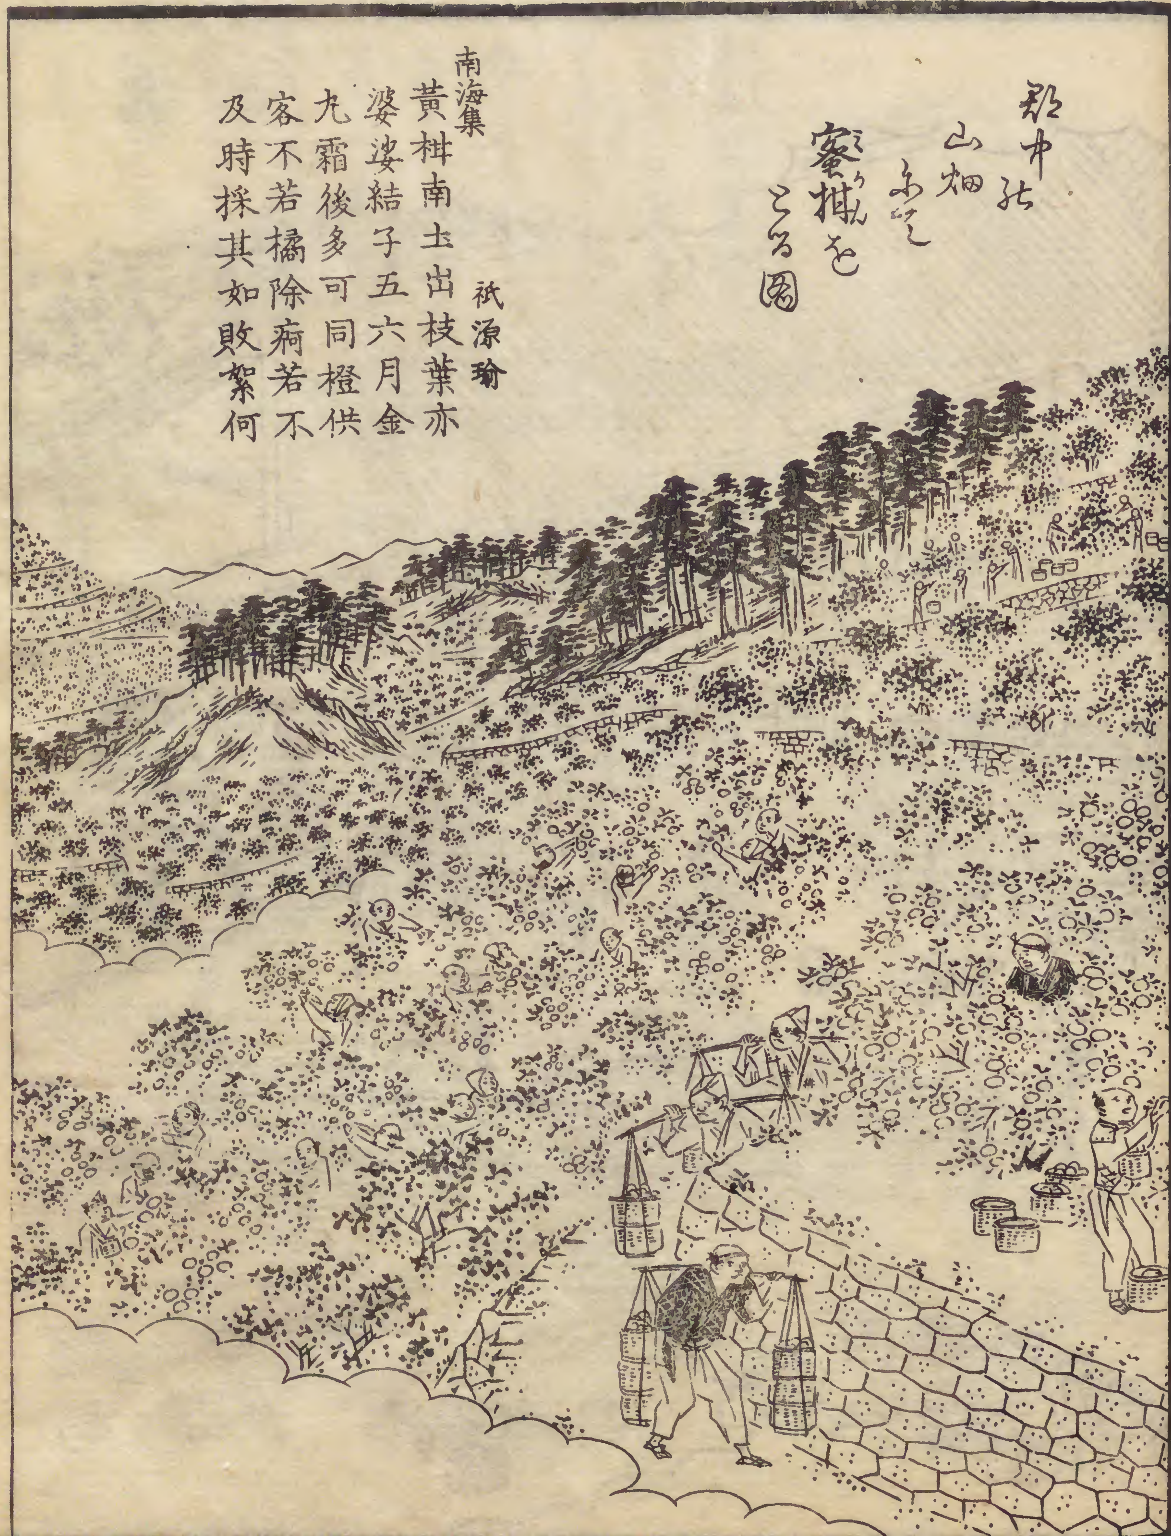 郡中の
山畑
にて
蜜柑を
とる図
南海集
祇源瑜
黄柑南土出枝葉亦
婆娑結子五六月金
丸霜後多可同橙供
客不若橘除痾若不
及時採其如敗絮何